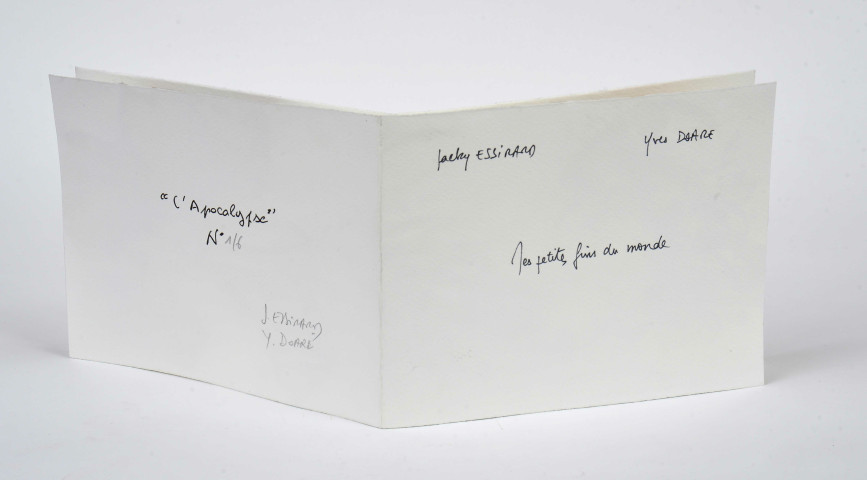 "L'Apocalypse"
N° 1/6
J ESSIRARD
Y. DOARE
Jacky ESSIRARD
Yves DOARE
les petites fins du monde